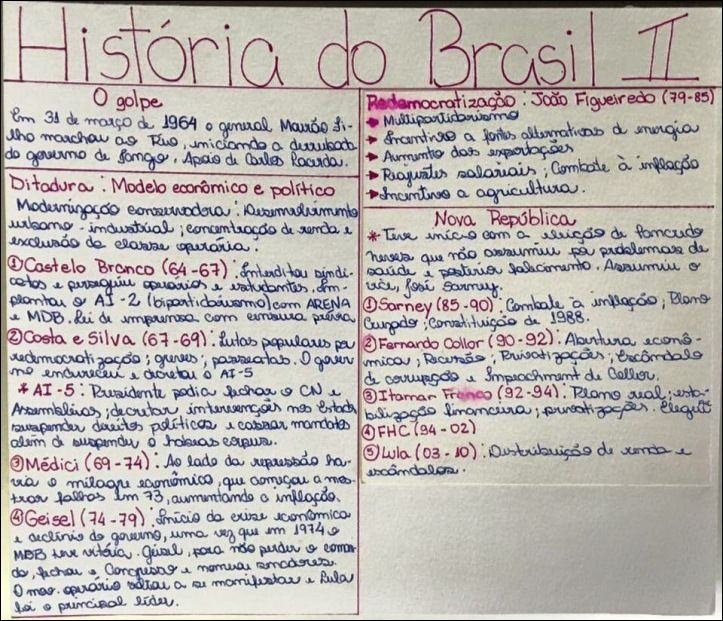 História do Brasil II
O golpe
Em 31 de março de 1964 o general Mourão Fi-
lho marchou ao Rio, iniciando a derrubada
do governo de Jango. Apoio de Carlos Lacerda.
Ditadura : Modelo econômico e político
Modernização conservadora : Desenvolvimento
urbano - industrial ; concentração de renda e
exclusão da classe operária.
① Castelo Branco (64-67) : Interditou sindi-
catos e perseguiu operários e estudantes. Im-
plantou o AI-2 (bipartidarismo) com ARENA
e MDB. Lei de imprensa com censura prévia
② Costa e Silva (67-69) : Lutas populares por
redemocratização ; greves ; passeatas. O gover
no endureceu e decretou o AI-5
* AI-5 : Presidente podia fechar o CN e
Assembléias ; decretar intervenções nos Estads
suspender direitos políticos e cassar mandatos
além de suspender o habeas corpus.
③ Médici (69-74) : Ao lado da repressão ha-
via o milagre econômico, que começou a mos-
trar falhas em 73, aumentando a inflação.
④ Geisel (74-79) : Início da crise econômica
e declínio do governo, uma vez que em 1974 o
MDB teve vitória. Geisel, para não perder o coman
do, fechou o Congresso e nomeou senadores.
O mov. operário voltou a se manifestar e Lula
foi o principal líder.
Redemocratização : João Figueiredo (79-85)
Multipartidarismo
Incentivo a fontes alternativas de energia
Aumento das exportações
Reajustes salariais ; Combate à inflação
Incentivo a agricultura.
Nova República
* Teve início com a eleição de Tancredo
Neves que não assumiu por problemas de
saúde e posterior falecimento. Assumiu o
vice, José Sarney.
① Sarney (85-90) : Combate à inflação ; Plano
Cruzado ; Constituição de 1988.
② Fernando Collor (90-92) : Abertura econô-
mica ; Recessão ; Privatizações ; Escândalo
de corrupção e Impeachment de Collor.
③ Itamar Franco (92-94) : Plano real ; esta-
bilização financeira ; privatizações.
④ FHC (94-02)
⑤ Lula (03-10) : Distribuição de renda e
escândalos.